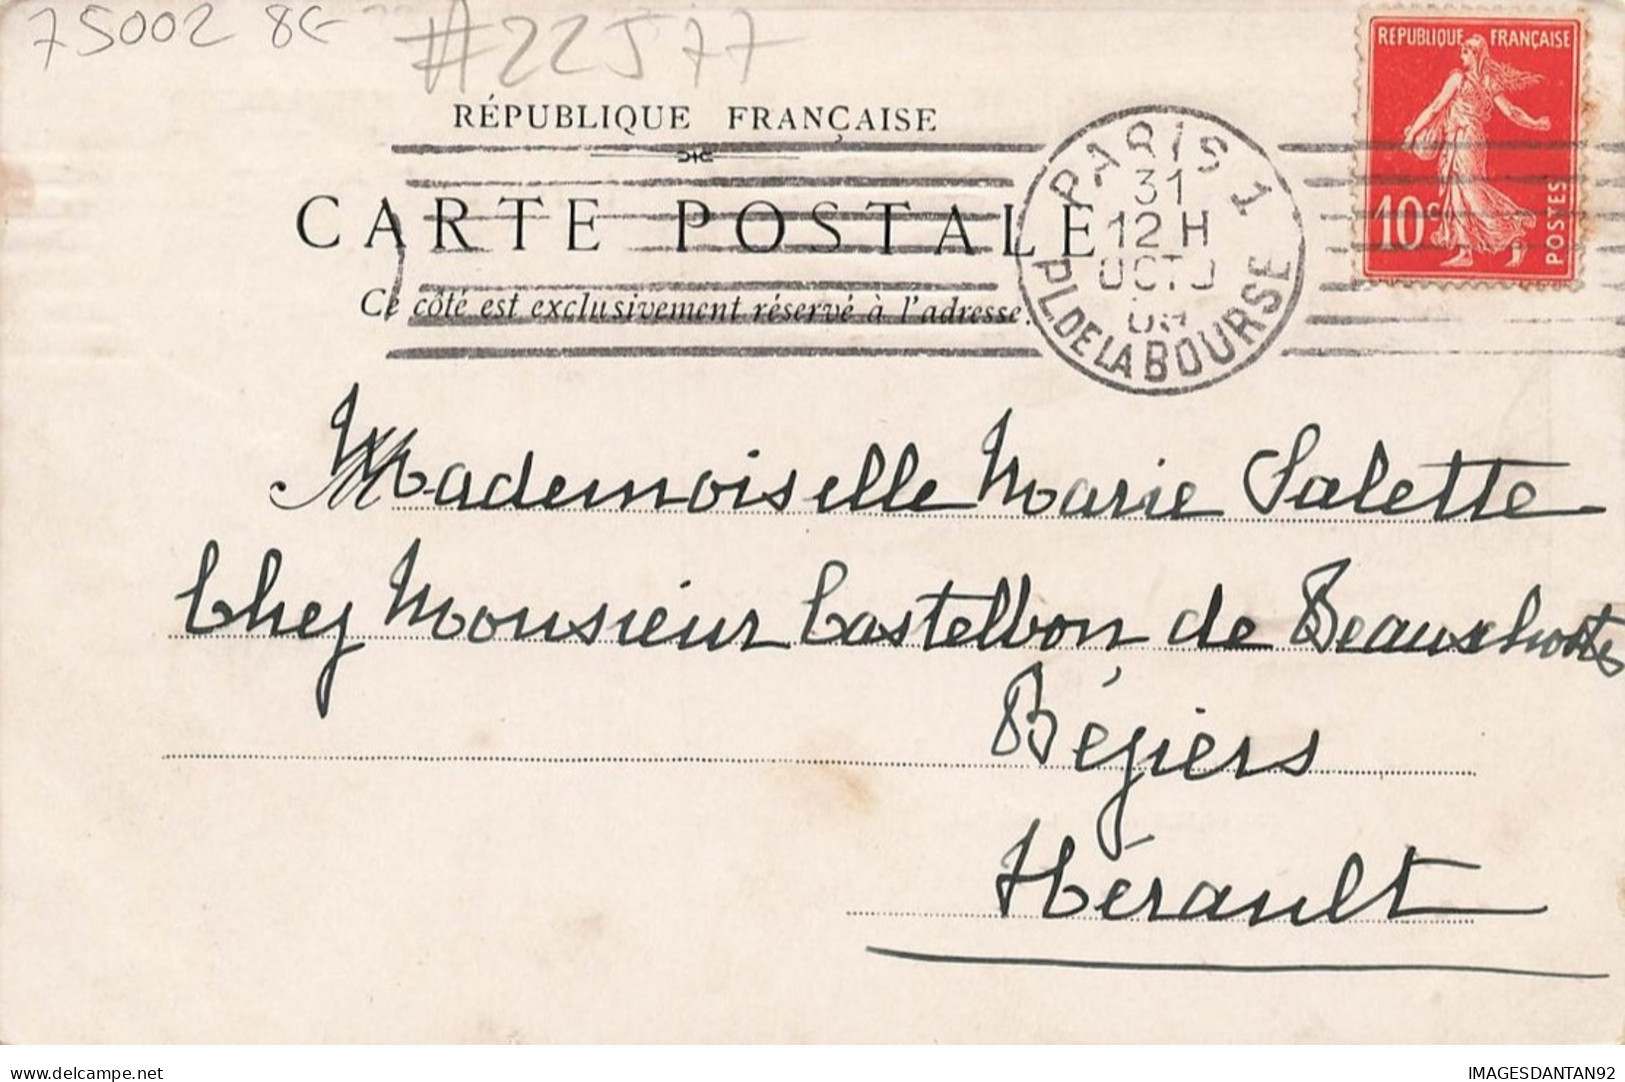 75002 8€
#22577
RÉPUBLIQUE FRANÇAISE
CARTE POSTALE
Ce côté est exclusivement réservé à l'adresse.
PARIS 1
31
12 H
OCTO
PL. DE LA BOURSE
REPUBLIQUE FRANÇAISE
10c
POSTES
Mademoiselle Marie Salette
Chez Monsieur Castelbon de Beauxhostes
Béziers
Hérault
www.delcampe.net
IMAGESDANTAN92